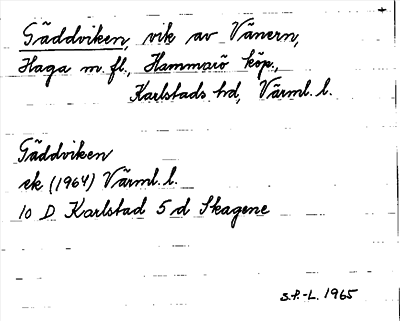 Gäddviken, vik av Vänern,
Haga m. fl., Hammarö köp.,
Karlstads hd, Värml. l.
Gäddviken
ek (1964) Värml. l.
10 D Karlstad 5 d Skagene
S.P.-L. 1965